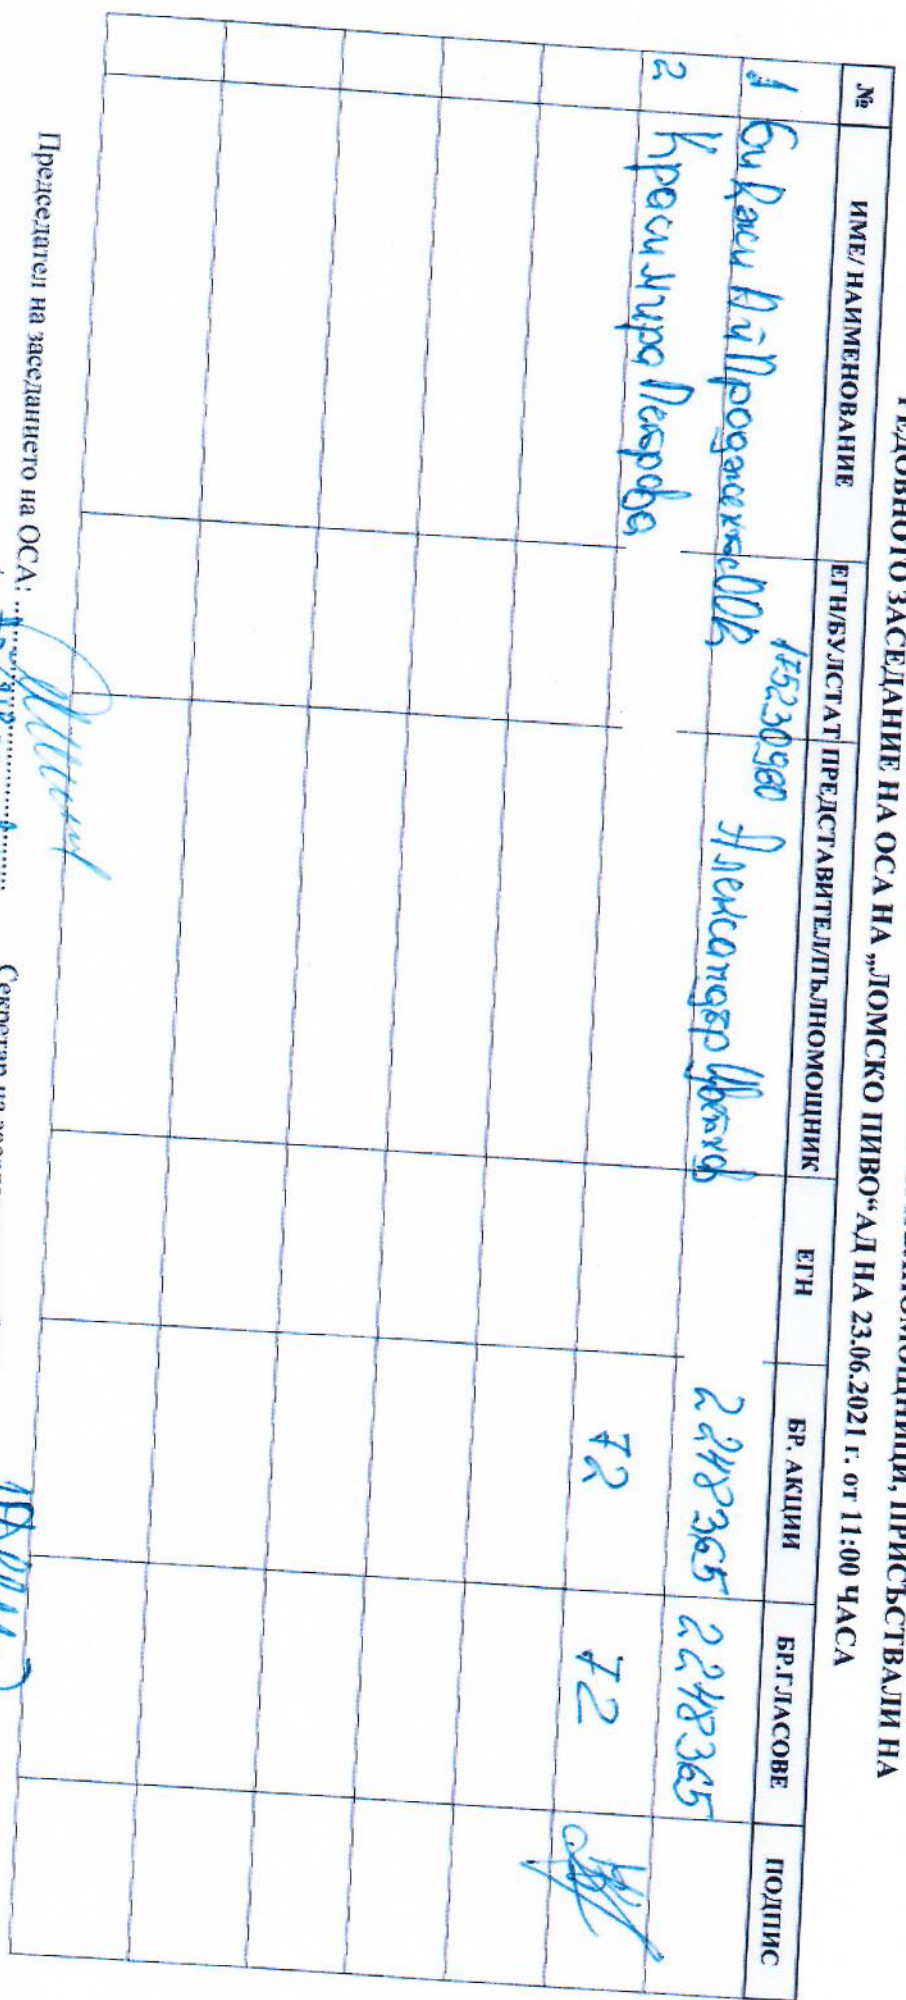 ПРИСЪСТВАЛИ НА
РЕДОВНОТО ЗАСЕДАНИЕ НА ОСА НА „ЛОМСКО ПИВО“АД НА 23.06.2021 г. от 11:00 ЧАСА
№ ИМЕ/ НАИМЕНОВАНИЕ ЕГН/БУЛСТАТ ПРЕДСТАВИТЕЛ/ПЪЛНОМОЩНИК ЕГН БР. АКЦИИ БР.ГЛАСОВЕ ПОДПИС
1 Би Джи Ай Проджектс ООД 175230980 Александър Цветков 2248365 2248365
2 Красимира Петрова 72 72
Председател на заседанието на ОСА:
Секретар на